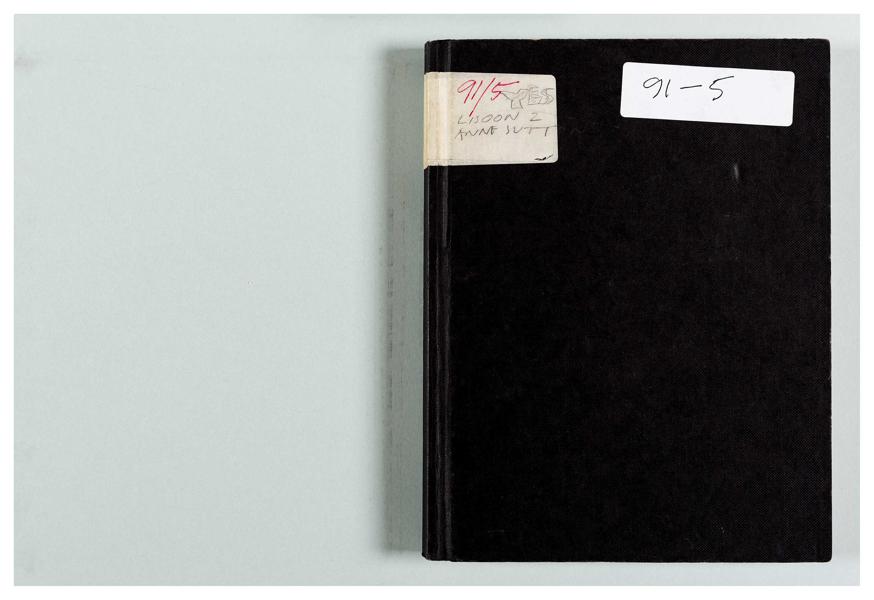 91/5
LISBON 2
ANNE SUTT
91-5